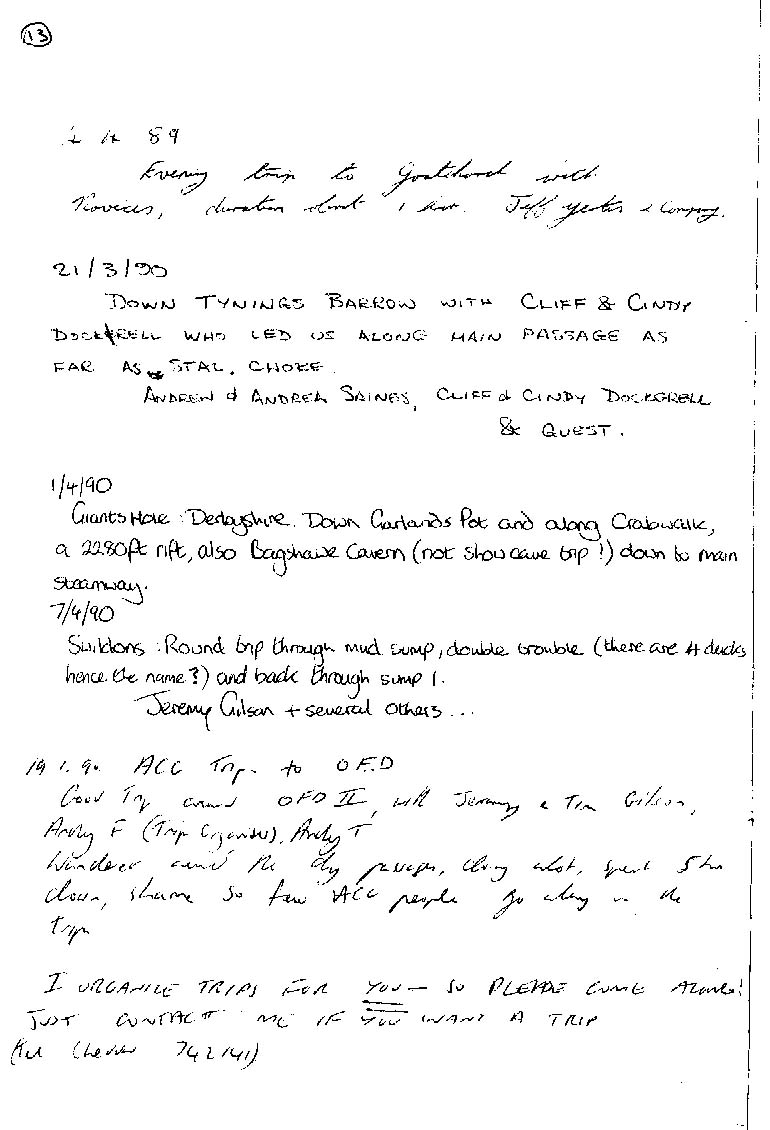 13
4 4 89
Evening trip to Goatchurch with
Novices, duration about 1 hour. Jeff Yeates & Company.
21/3/90
DOWN TYNINGS BARROW WITH CLIFF & CINDY
DOCKERELL WHO LED US ALONG MAIN PASSAGE AS
FAR AS STAL. CHOKE.
ANDREW & ANDREA SAINGS, CLIFF & CINDY DOCKERELL
& GUEST.
1/4/90
Giants Hole : Derbyshire. Down Garlands Pot and along Crabwalk,
a 2280ft rift, also Bagshawe Cavern (not show cave trip !) down to main
steamway.
7/4/90
Swildons : Round trip through mud sump, double trouble (there are 4 ducks
hence the name?) and back through sump 1.
Jeremy Gilson + several others...
19 1. 90 ACG Trip to OFD
Good Trip around OFD II, with Jeremy & Tim Gilson,
Andy F (Trip Organiser), Andy T
Wandered around the dry passages, spent 5 hrs
down, shame so few ACG people go along on the
trips
I ORGANISE TRIPS FOR YOU — SO PLEASE COME ALONG!
JUST CONTACT ME IF YOU WANT A TRIP
742141)